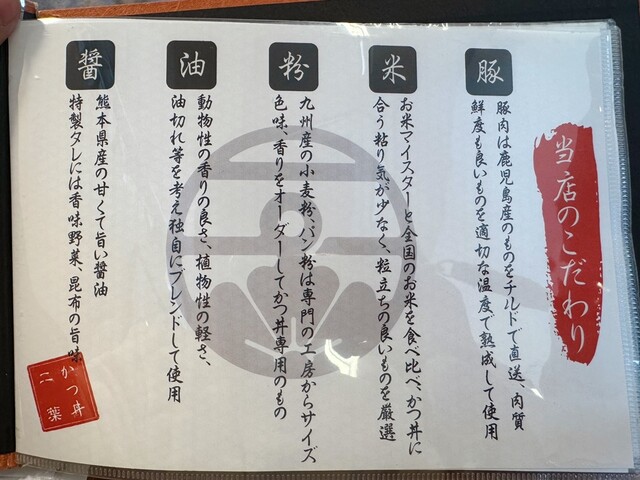 当店のこだわり
豚
豚肉は鹿児島産のものをチルドで直送、肉質
鮮度も良いものを適切な温度で熟成して使用
米
お米マイスターと全国のお米を食べ比べ、かつ丼に
合う粘り気が少なく、粒立ちの良いものを厳選
粉
九州産の小麦粉、パン粉は専門の工房からサイズ
色味、香りをオーダーしてかつ丼専用のもの
油
動物性の香りの良さ、植物性の軽さ、
油切れ等を考え独自にブレンドして使用
醤
熊本県産の甘くて旨い醤油
特製タレには香味野菜、昆布の旨味
かつ丼
二葉